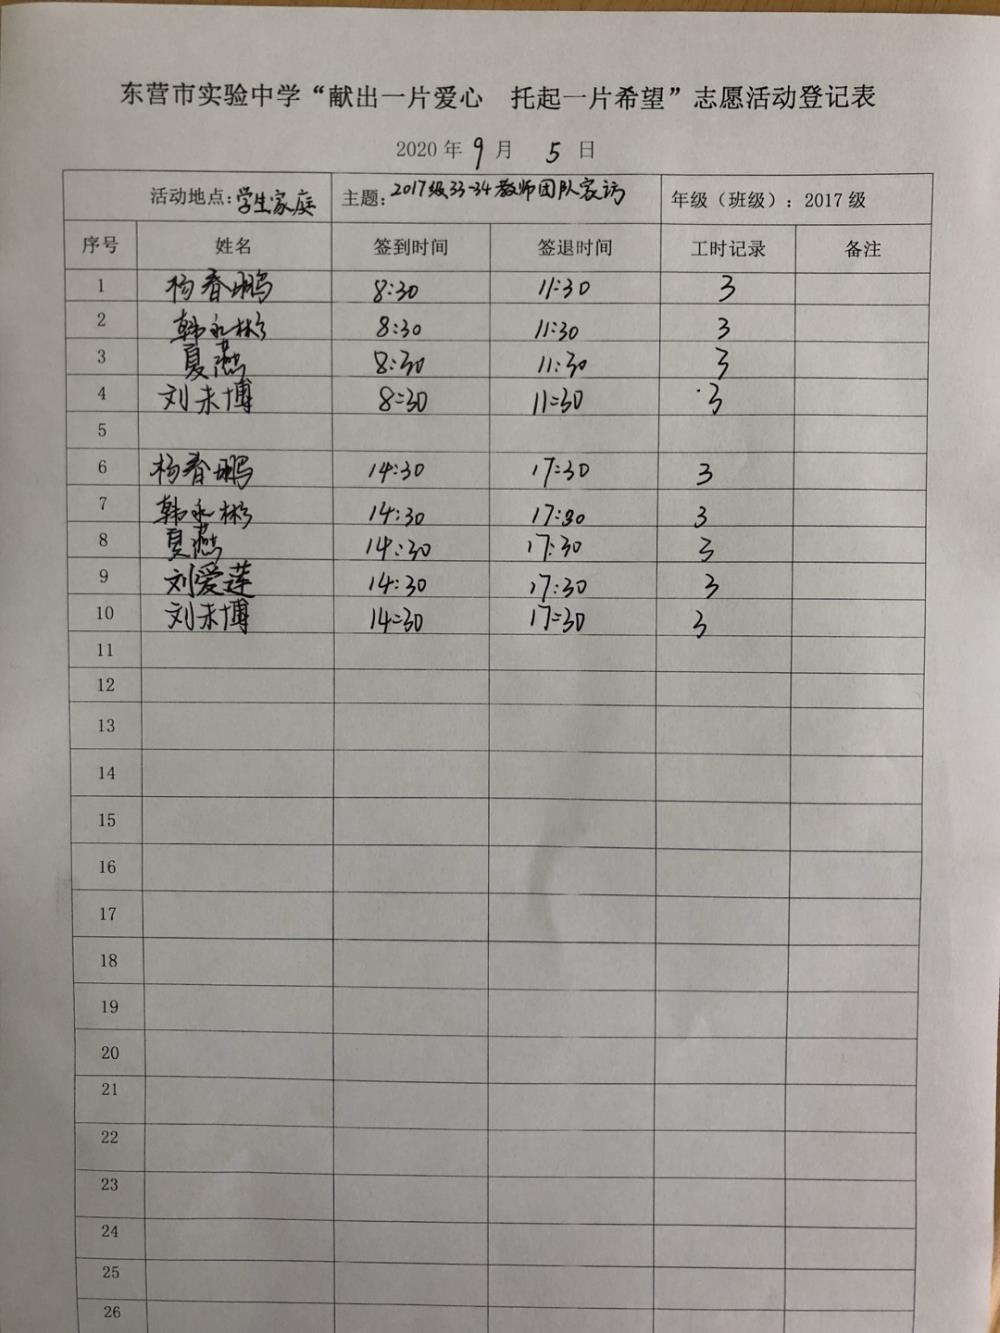 东营市实验中学“献出一片爱心 托起一片希望”志愿活动登记表
2020 年 9 月 5 日
活动地点: 学生家庭 主题: 2017级33-34教师团队家访 年级（班级）: 2017 级
序号 姓名 签到时间 签退时间 工时记录 备注
1 杨春鹏 8:30 11:30 3
2 韩永彬 8:30 11:30 3
3 夏燕 8:30 11:30 3
4 刘未博 8:30 11:30 3
5
6 杨春鹏 14:30 17:30 3
7 韩永彬 14:30 17:30 3
8 夏燕 14:30 17:30 3
9 刘爱莲 14:30 17:30 3
10 刘未博 14:30 17:30 3
11
12
13
14
15
16
17
18
19
20
21
22
23
24
25
26